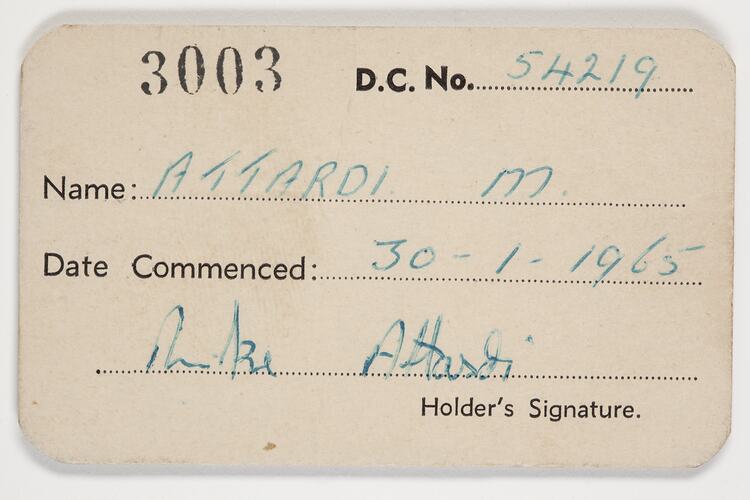 3003 D.C. No. 54219
Name: ATTARDI M.
Date Commenced: 30-1-1965
Mike Attardi
Holder's Signature.